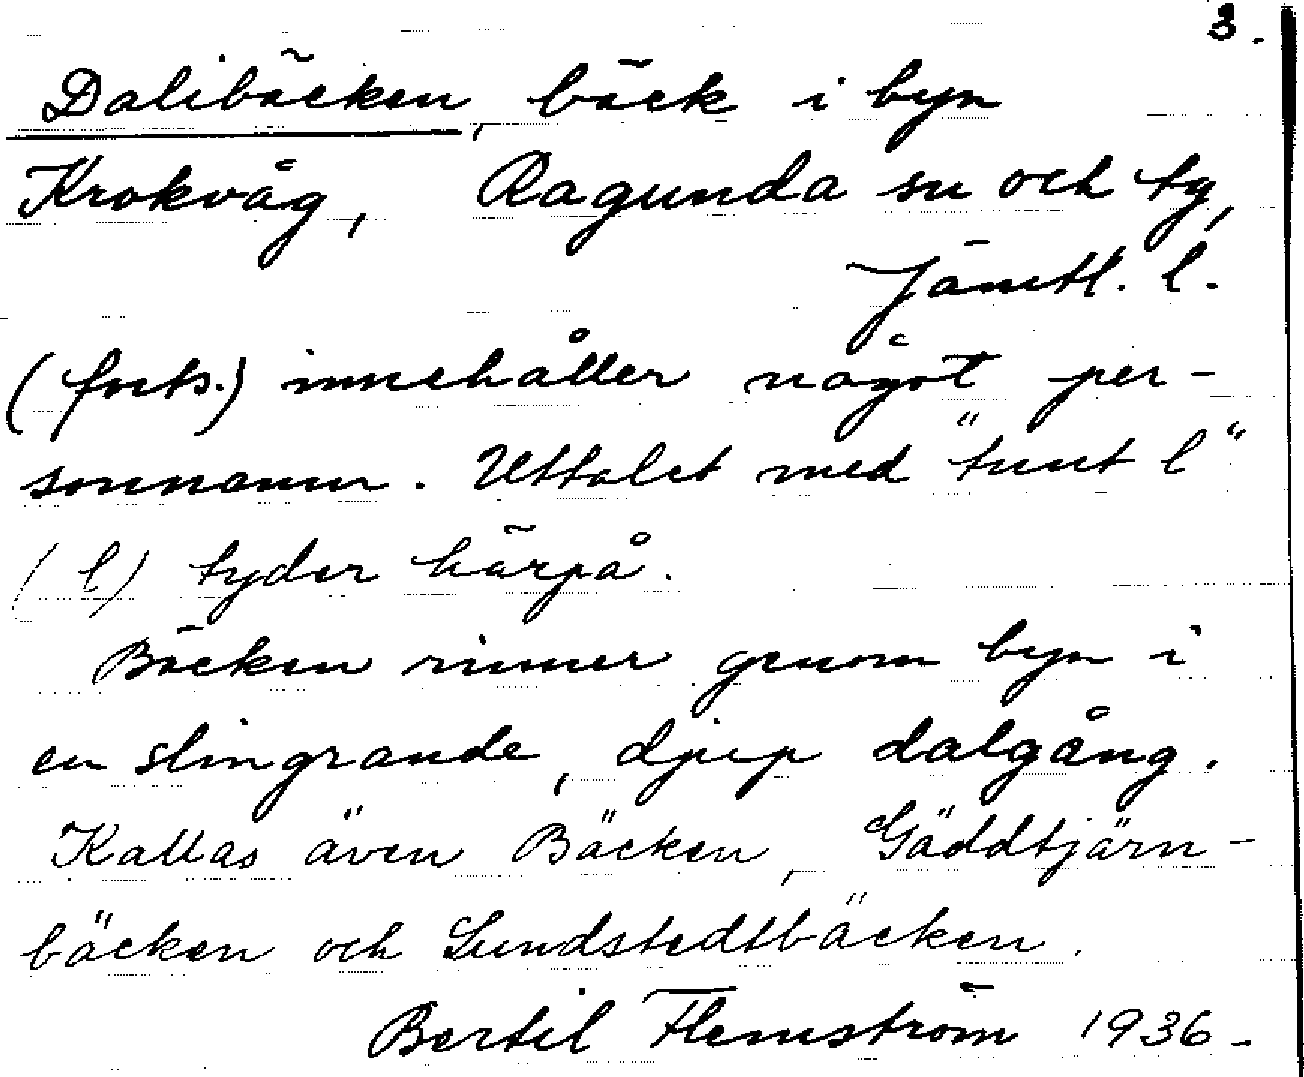 3.
Dalibäcken, bäck i byn
Krokvåg, Ragunda sn och tg,
Jämtl. l.
(forts.) innehåller något per-
sonnamn. Uttalet med "tunt l"
(l) tyder härpå.
Bäcken rinner genom byn i
en slingrande, djup dalgång.
Kallas även Bäcken, Gäddtjärn-
bäcken och Sundstedtbäcken.
Bertil Flemström 1936.